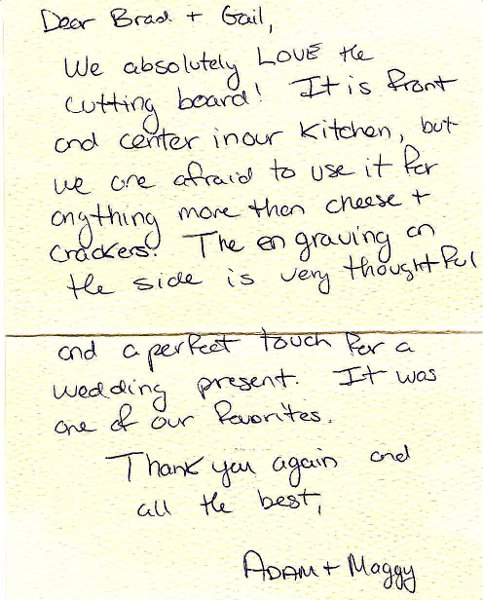 Dear Brad + Gail,
We absolutely LOVE the
cutting board! It is front
and center in our kitchen, but
we are afraid to use it for
anything more than cheese +
crackers. The engraving on
the side is very thoughtful
and a perfect touch for a
wedding present. It was
one of our favorites.
Thank you again and
all the best,
ADAM + Maggy